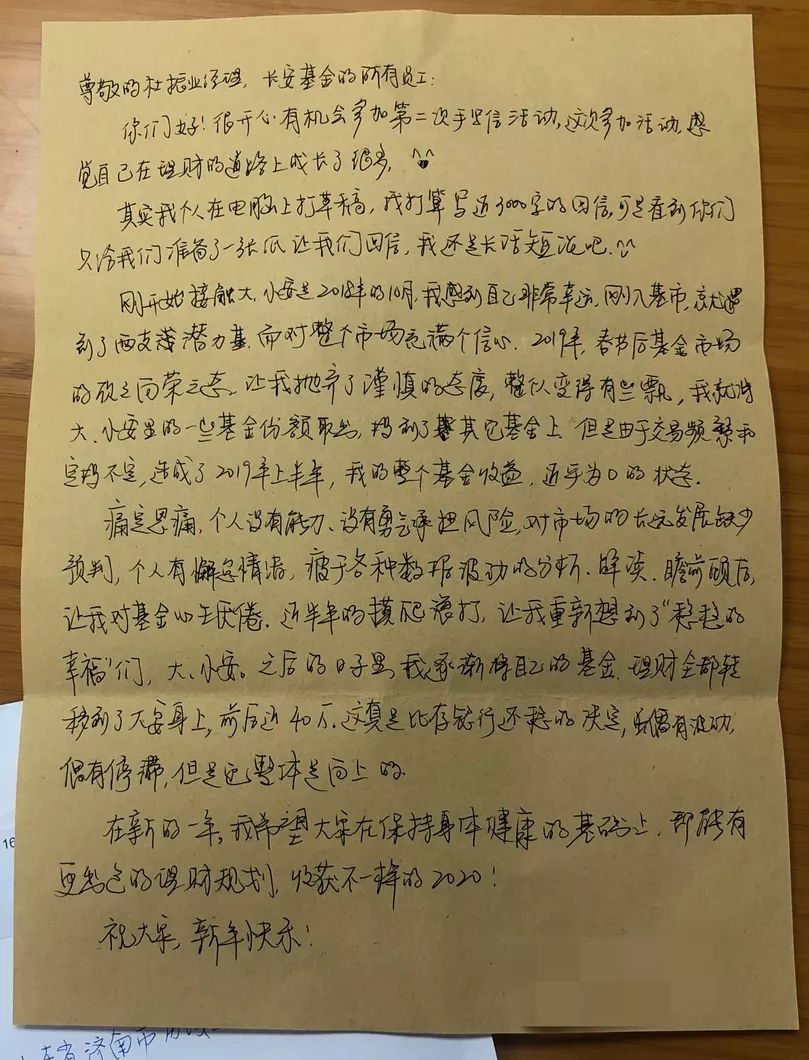 尊敬的杜振业经理，长安基金的所有员工：
你们好！很开心有机会参加第二次手写信活动，这次参加活动，感
觉自己在理财的道路上成长了很多，^^
其实我个人在电脑上打草稿，我打算写近3000字的回信，可是看到你们
只给我们准备了一张纸让我们回信，我还是长话短说吧.^^
刚开始接触大、小安是2018年的10月，我感到自己非常幸运，刚入基市，就遇
到了两支潜力基，而对整个市场充满个信心．2019年，春节后基金市场
的欣欣向荣之态，让我抛弃了谨慎的态度，整个人变得有些飘，我就将
大、小安里的一些基金份额取出，投到了其它基金上．但是由于交易频繁和
定投不定，造成了2019年上半年，我的整个基金收益，近乎为0的状态．
痛定思痛，个人没有能力、没有勇气承担风险，对市场的长远发展缺少
预判，个人有懈怠情绪，疲于各种数据波动的分析、解读、瞻前顾后，
让我对基金心生厌倦．近半年的摸爬滚打，让我重新想到了“稳稳的
幸福”们，大、小安。之后的日子里，我逐渐将自己的基金、理财全部转
移到了大安身上，前后近40万．这真是比存银行还稳的决定，虽偶有波动，
偶有停滞，但是它整体是向上的．
在新的一年，我希望大家在保持身体健康的基础上，都能有
更出色的理财规划，收获不一样的2020！
祝大家，新年快乐！
16
东省济南市历